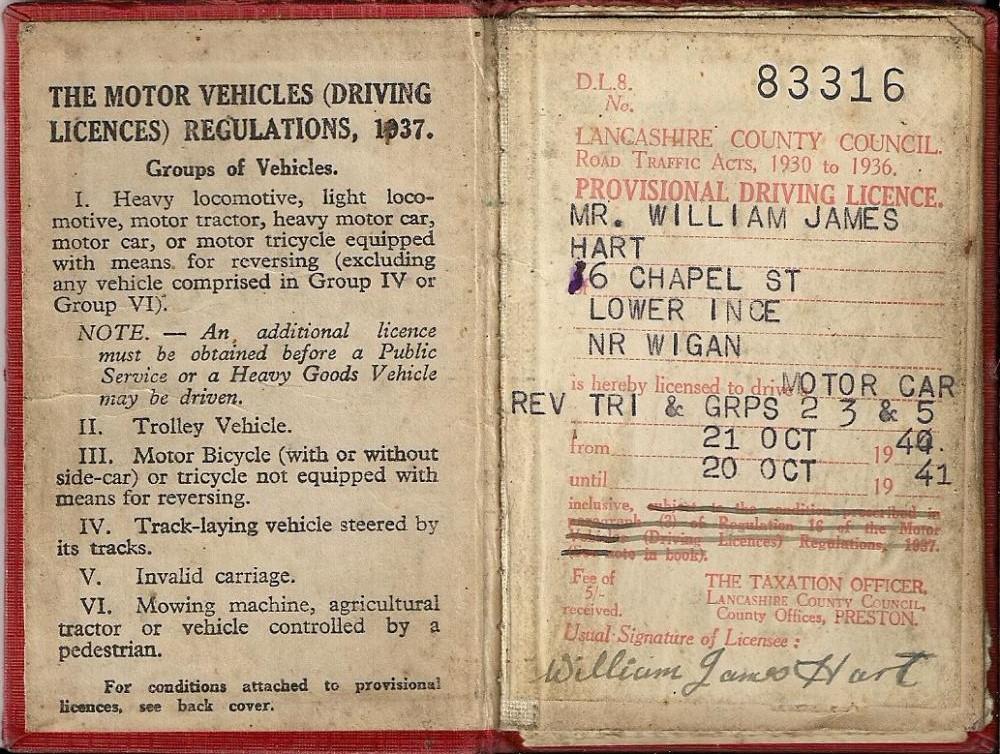 THE MOTOR VEHICLES (DRIVING
LICENCES) REGULATIONS, 1937.
Groups of Vehicles.
I. Heavy locomotive, light loco-
motive, motor tractor, heavy motor car,
motor car, or motor tricycle equipped
with means for reversing (excluding
any vehicle comprised in Group IV or
Group VI).
NOTE. — An additional licence
must be obtained before a Public
Service or a Heavy Goods Vehicle
may be driven.
II. Trolley Vehicle.
III. Motor Bicycle (with or without
side-car) or tricycle not equipped with
means for reversing.
IV. Track-laying vehicle steered by
its tracks.
V. Invalid carriage.
VI. Mowing machine, agricultural
tractor or vehicle controlled by a
pedestrian.
For conditions attached to provisional
licences, see back cover.
D.L.8.
No. 83316
LANCASHIRE COUNTY COUNCIL.
ROAD TRAFFIC ACTS, 1930 to 1936.
PROVISIONAL DRIVING LICENCE.
MR. WILLIAM JAMES
HART
6 CHAPEL ST
LOWER INCE
NR WIGAN
is hereby licensed to drive MOTOR CAR
REV TRI & GRPS 2 3 & 5
from 21 OCT 1940.
until 20 OCT 1941
inclusive, subject to the condition prescribed in
paragraph (3) of Regulation 16 of the Motor
Vehicles (Driving Licences) Regulations, 1937.
(See note in book).
Fee of
5/-
received.
THE TAXATION OFFICER,
LANCASHIRE COUNTY COUNCIL,
County Offices, PRESTON.
Usual Signature of Licensee :
William James Hart